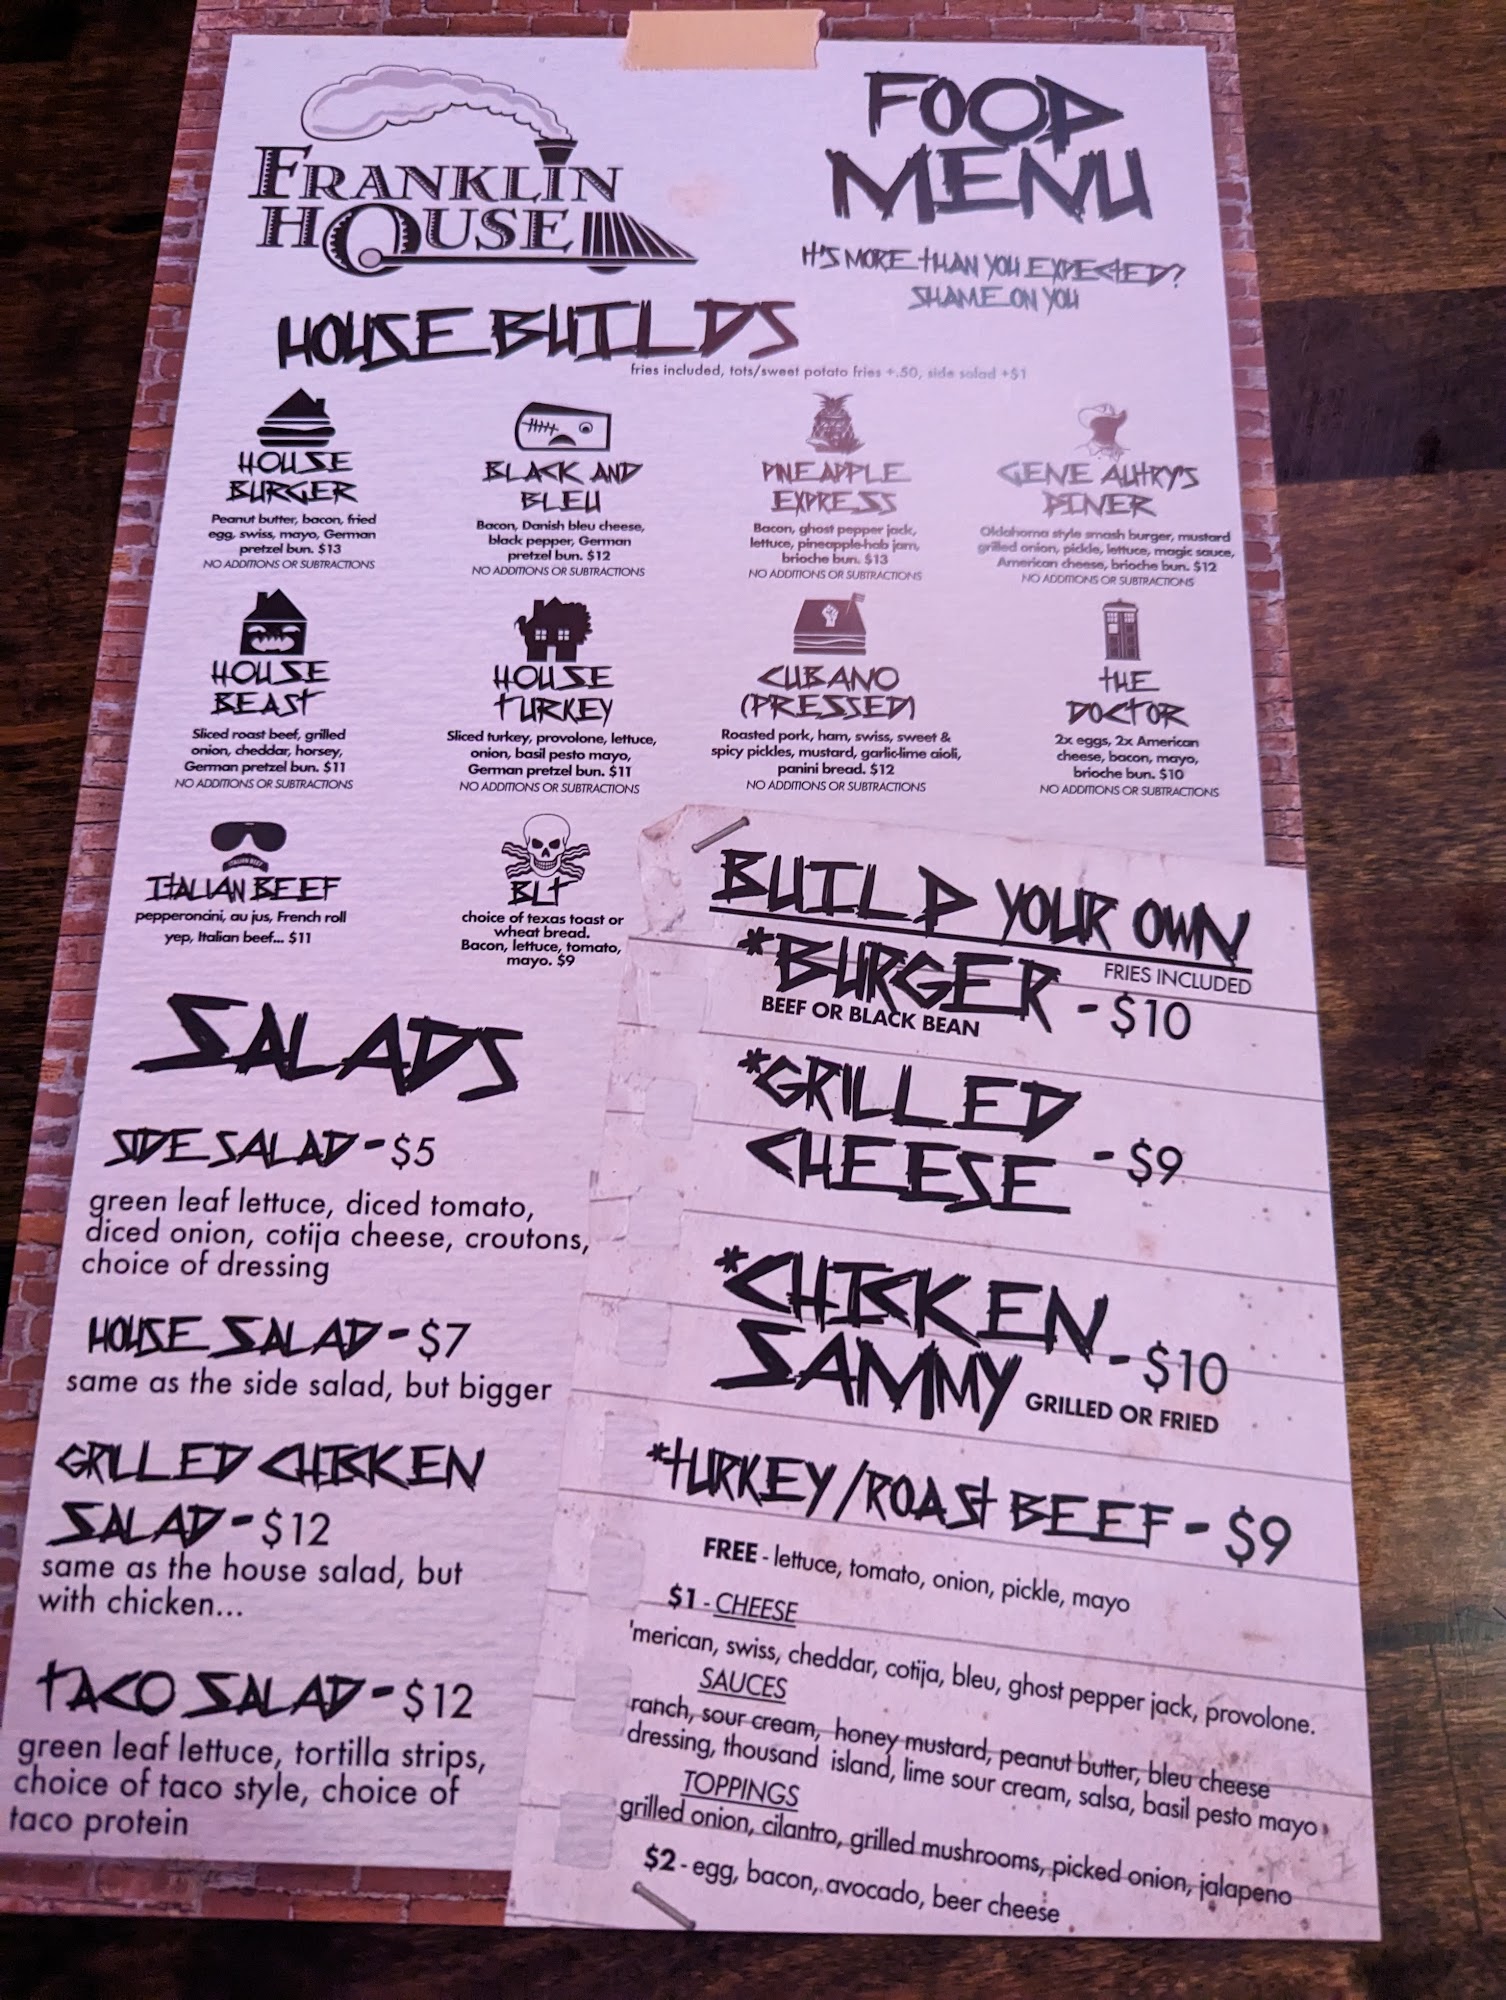 FRANKLIN
HOUSE
FOOD
MENU
IT'S MORE THAN YOU EXPECTED?
SHAME ON YOU
HOUSE BUILDS
fries included, tots/sweet potato fries +.50, side salad +$1
HOUSE
BURGER
Peanut butter, bacon, fried
egg, swiss, mayo, German
pretzel bun. $13
NO ADDITIONS OR SUBTRACTIONS
BLACK AND
BLEU
Bacon, Danish bleu cheese,
black pepper, German
pretzel bun. $12
NO ADDITIONS OR SUBTRACTIONS
PINEAPPLE
EXPRESS
Bacon, ghost pepper jack,
lettuce, pineapple-hab jam,
brioche bun. $13
NO ADDITIONS OR SUBTRACTIONS
GENE AUTRY'S
DINER
Oklahoma style smash burger, mustard
grilled onion, pickle, lettuce, magic sauce,
American cheese, brioche bun. $12
NO ADDITIONS OR SUBTRACTIONS
HOUSE
BEAST
Sliced roast beef, grilled
onion, cheddar, horsey,
German pretzel bun. $11
NO ADDITIONS OR SUBTRACTIONS
HOUSE
TURKEY
Sliced turkey, provolone, lettuce,
onion, basil pesto mayo,
German pretzel bun. $11
NO ADDITIONS OR SUBTRACTIONS
CUBANO
(PRESSED)
Roasted pork, ham, swiss, sweet &
spicy pickles, mustard, garlic-lime aioli,
panini bread. $12
NO ADDITIONS OR SUBTRACTIONS
THE
DOCTOR
2x eggs, 2x American
cheese, bacon, mayo,
brioche bun. $10
NO ADDITIONS OR SUBTRACTIONS
ITALIAN BEEF
ITALIAN BEEF
pepperoncini, au jus, French roll
yep, Italian beef... $11
BLT
choice of texas toast or
wheat bread.
Bacon, lettuce, tomato,
mayo. $9
SALADS
SIDE SALAD - $5
green leaf lettuce, diced tomato,
diced onion, cotija cheese, croutons,
choice of dressing
HOUSE SALAD - $7
same as the side salad, but bigger
GRILLED CHICKEN
SALAD - $12
same as the house salad, but
with chicken...
TACO SALAD - $12
green leaf lettuce, tortilla strips,
choice of taco style, choice of
taco protein
BUILD YOUR OWN
FRIES INCLUDED
*BURGER - $10
BEEF OR BLACK BEAN
*GRILLED
CHEESE - $9
*CHICKEN
SAMMY - $10
GRILLED OR FRIED
*TURKEY/ROAST BEEF - $9
FREE - lettuce, tomato, onion, pickle, mayo
$1 - CHEESE
'merican, swiss, cheddar, cotija, bleu, ghost pepper jack, provolone.
SAUCES
ranch, sour cream, honey mustard, peanut butter, bleu cheese
dressing, thousand island, lime sour cream, salsa, basil pesto mayo
TOPPINGS
grilled onion, cilantro, grilled mushrooms, picked onion, jalapeno
$2 - egg, bacon, avocado, beer cheese